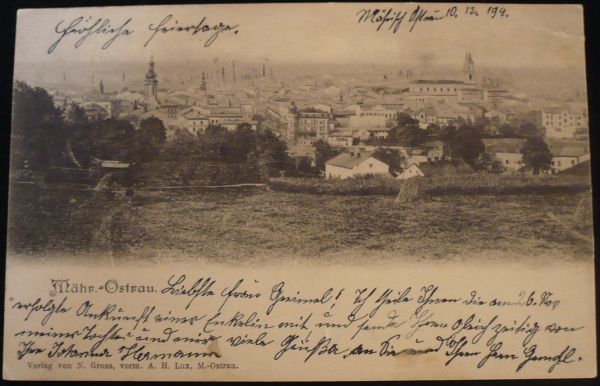 Fröhliche Feiertage.
Mährisch Ostrau 10. 12. 199.
Mähr.-Ostrau.
Liebste Frau Greimel! Ich theile Ihnen die am 26. Nov
erfolgte Ankunft einer Enkelin mit und sende Ihnen gleichzeitig von
meiner Tochter und mir viele Grüße, an Sie und Ihren Herrn Gemahl.
Ihre Johanna Hermann
Verlag von N. Gross, vorm. A. H. Lux, M.-Ostrau.